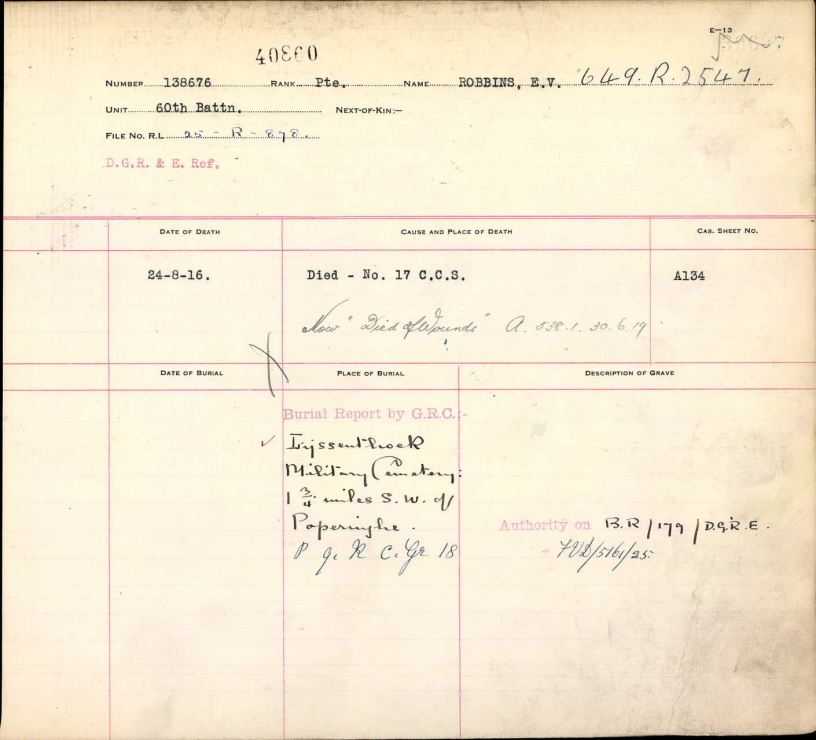 E-13
40860
NUMBER 138676 RANK Pte. NAME ROBBINS, E.V. 649.R.2547.
UNIT 60th Battn. NEXT-OF-KIN:—
FILE NO. R.L. 25 - R - 878.
D.G.R. & E. Ref.
DATE OF DEATH CAUSE AND PLACE OF DEATH CAS. SHEET NO.
24-8-16. Died - No. 17 C.C.S. A134
Now "Died of Wounds" A. 538.1. 30.6.19
DATE OF BURIAL PLACE OF BURIAL DESCRIPTION OF GRAVE
Burial Report by G.R.C.:-
Lijssenthoek
Military Cemetery:
1 3/4 miles S.W. of
Poperinghe.
Authority on B.R/179/D.G.R.E.
C. Gr 18
/5161/25